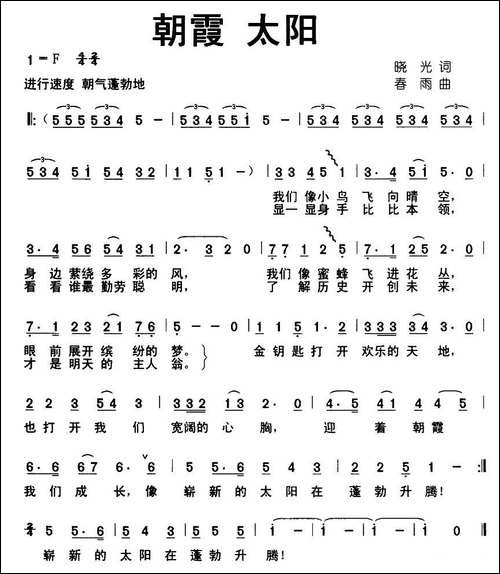 朝霞 太阳
1=F 2/4 3/4
晓 光 词
进行速度 朝气蓬勃地
春 雨 曲
‖:( 555534 5 - | 534551 5 - | 534 534 534 534 |
534 51 54 32 | 11 51 1 -) | 33 45 1 | 3· 4 51 | 5· 0 |
我们 像小 鸟 飞 向 晴 空,
显一 显身 手 比 比 本 领,
3· 4 56 54 31 | 2· 3 20 | 77 12 5 | 7· 1 23 | 2· 0 |
身 边 萦绕 多 彩的 风, 我们 像 蜜 蜂 飞 进 花 丛,
看 看 谁最 勤劳 聪 明, 了 解 历史 开 创 未 来,
7· 1 23 21 76 | 5 - - 0 | 1 15 1· 2 | 33 33 2· 0 |
眼 前 展开 缤 纷的 梦。 金 钥 匙 打 开 欢乐的 天 地,
才 是 明天 的 主人 翁。
2 2 3 54 3 | 33 2 13 2· 0 | 5· 4 21 | 4 45 |
也 打 开 我 们 宽阔的 心 胸, 迎 着 朝霞
6· 6 67 6· 6 | 5 5· 6 | 54 3 | 5· 3 | 2 2 5 1 - :‖
我 们 成 长, 像 崭 新 的 太 阳 在 蓬 勃 升 腾!
5 5· 6 | 54 3 | 5· 3 | 55 6 | 1 - | 1 0 ‖
崭 新 的 太 阳 在 蓬 勃 升 腾!